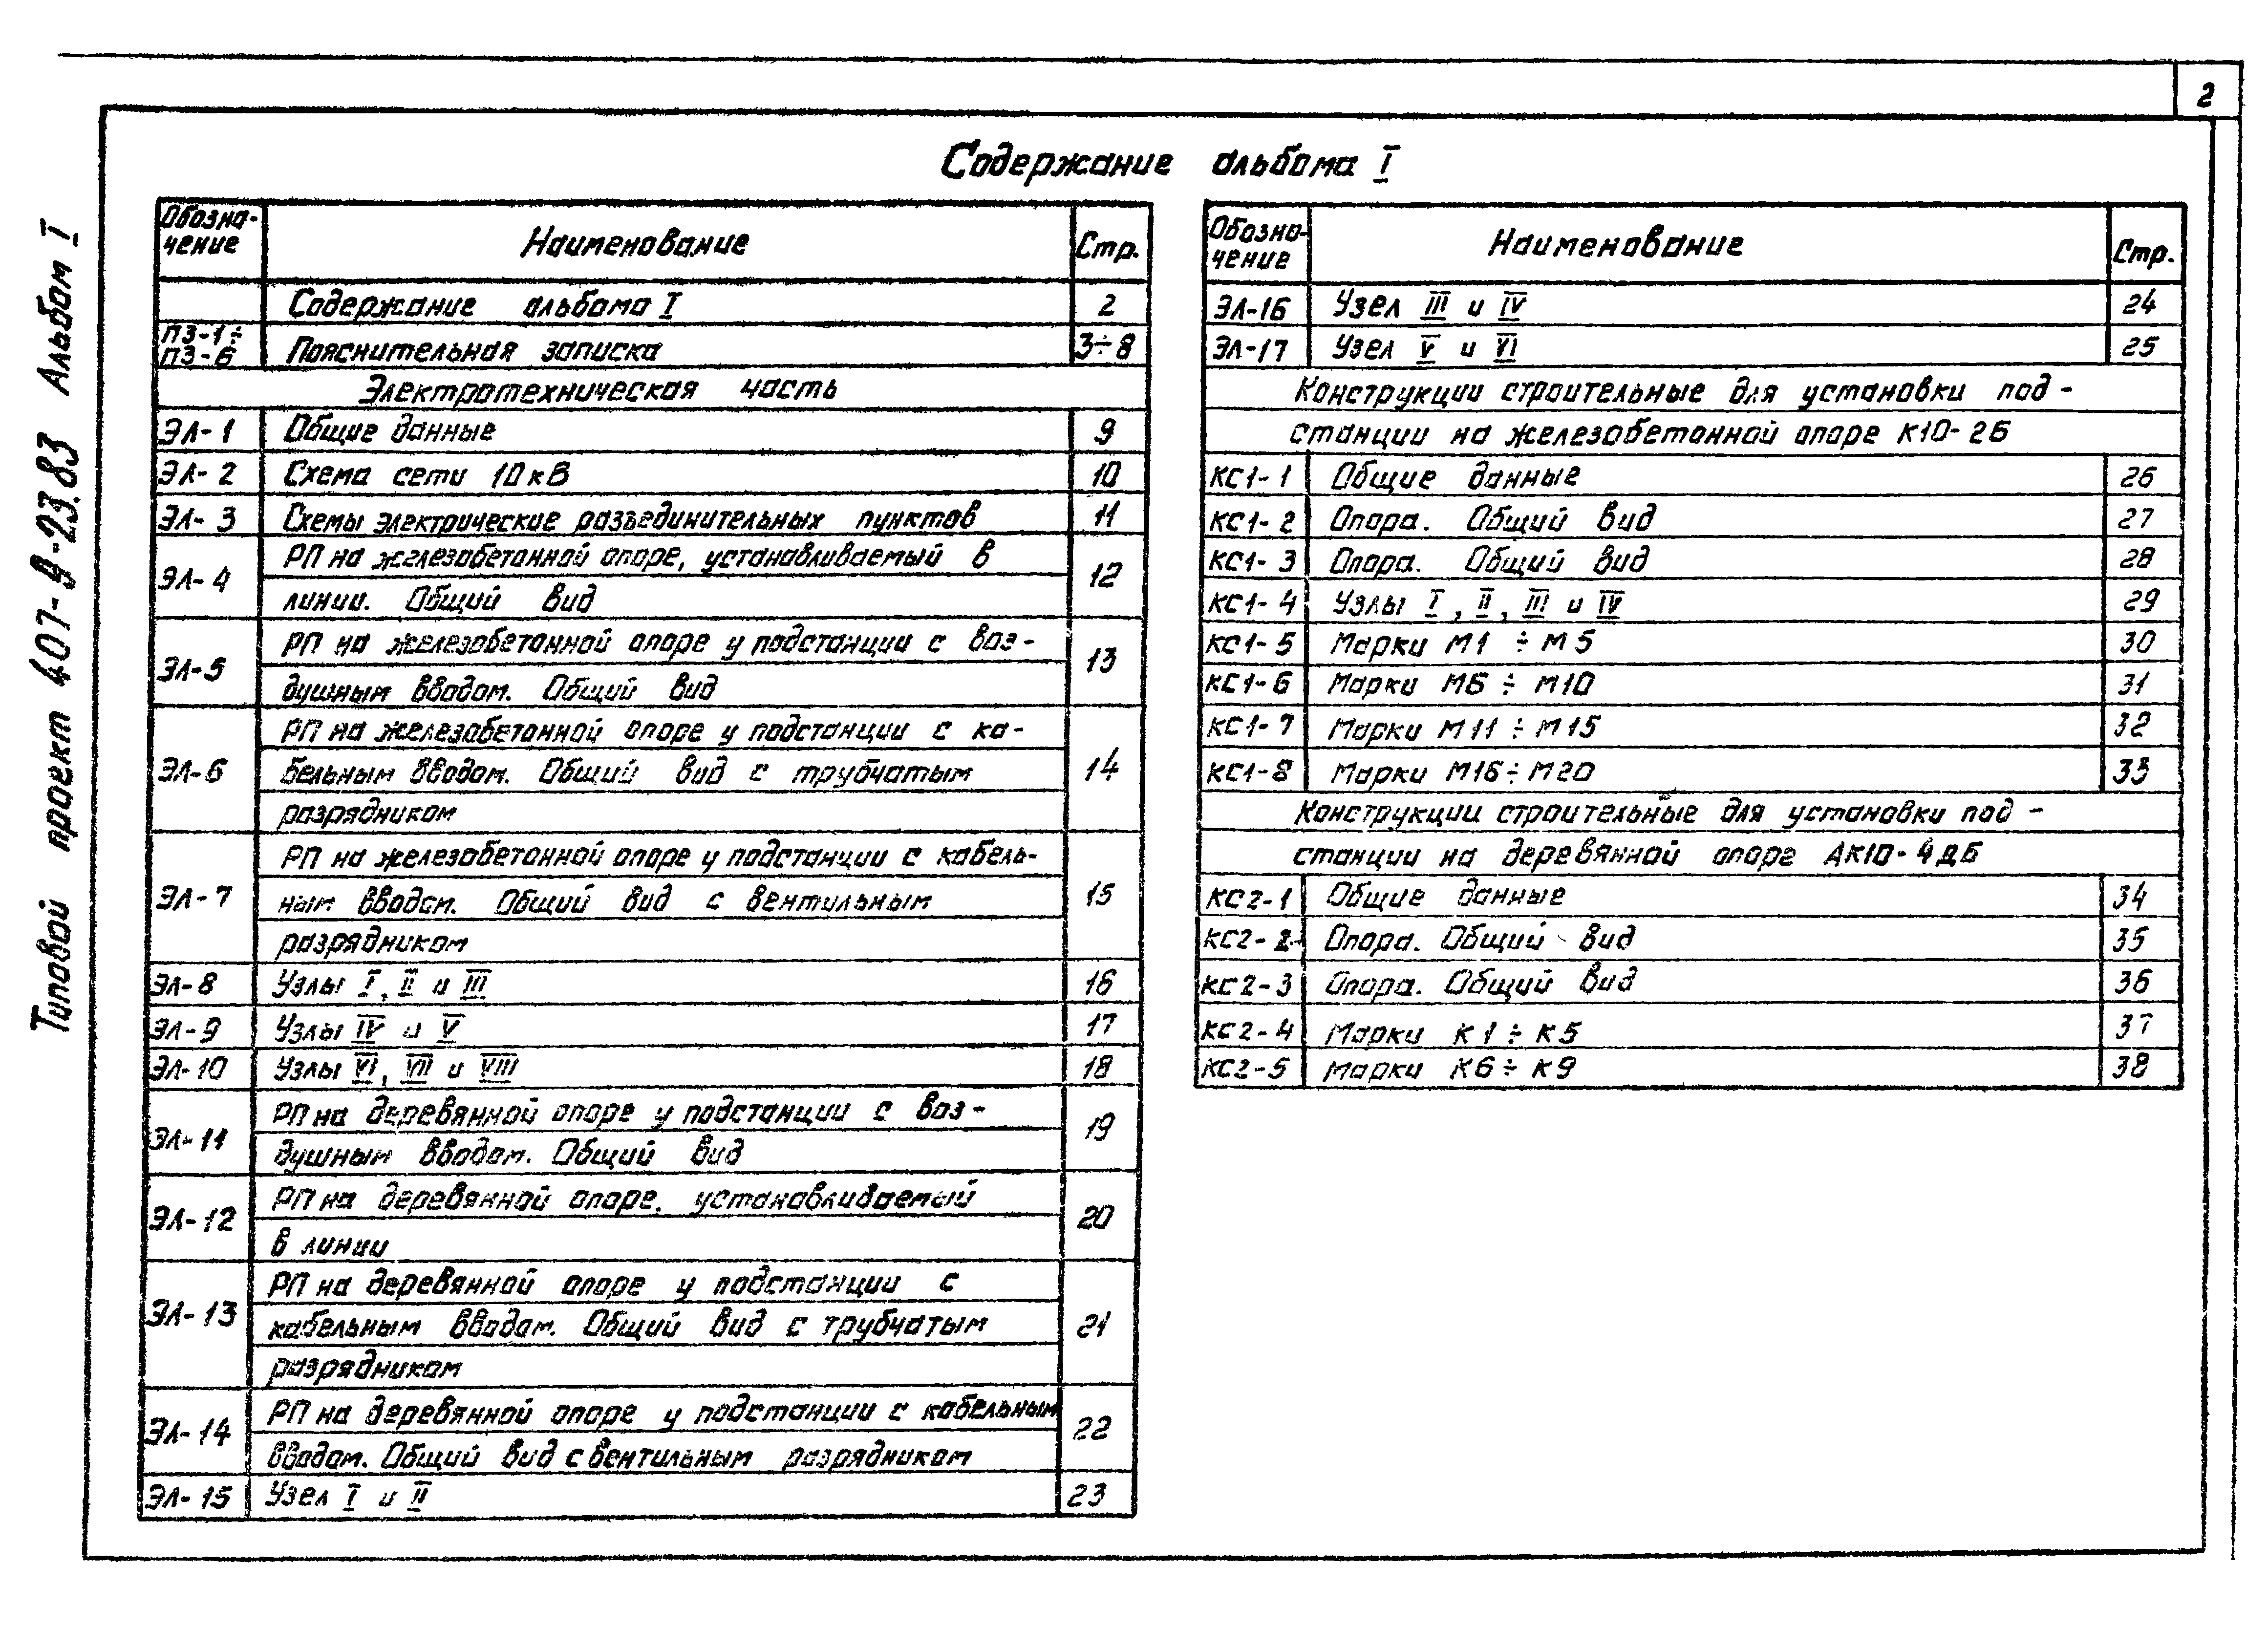 2
Содержание альбома I
Типовой проект 407-9-23.83 Альбом I
Обозна-
чение
Наименование
Стр.
Содержание альбома I 2
ПЗ-1÷
ПЗ-6 Пояснительная записка 3÷8
Электротехническая часть
ЭЛ-1 Общие данные 9
ЭЛ-2 Схема сети 10кВ 10
ЭЛ-3 Схемы электрические разъединительных пунктов 11
РП на железобетонной опоре, устанавливаемый в
ЭЛ-4 12
линии. Общий вид
РП на железобетонной опоре у подстанции с воз-
ЭЛ-5 13
душным вводом. Общий вид
РП на железобетонной опоре у подстанции с ка-
ЭЛ-6 бельным вводом. Общий вид с трубчатым 14
разрядником
РП на железобетонной опоре у подстанции с кабель-
ЭЛ-7 ным вводом. Общий вид с вентильным 15
разрядником
ЭЛ-8 Узлы I, II и III 16
ЭЛ-9 Узлы IV и V 17
ЭЛ-10 Узлы VI, VII и VIII 18
РП на деревянной опоре у подстанции с воз-
ЭЛ-11 19
душным вводом. Общий вид
РП на деревянной опоре, устанавливаемый
ЭЛ-12 20
в линии
РП на деревянной опоре у подстанции с
ЭЛ-13 кабельным вводом. Общий вид с трубчатым 21
разрядником
РП на деревянной опоре у подстанции с кабельным
ЭЛ-14 22
вводом. Общий вид с вентильным разрядником
ЭЛ-15 Узел I и II 23
Обозна-
чение
Наименование
Стр.
ЭЛ-16 Узел III и IV 24
ЭЛ-17 Узел V и VI 25
Конструкции строительные для установки под-
станции на железобетонной опоре К10-2Б
КС1-1 Общие данные 26
КС1-2 Опора. Общий вид 27
КС1-3 Опора. Общий вид 28
КС1-4 Узлы I, II, III и IV 29
КС1-5 Марки М1÷М5 30
КС1-6 Марки М6÷М10 31
КС1-7 Марки М11÷М15 32
КС1-8 Марки М16÷М20 33
Конструкции строительные для установки под-
станции на деревянной опоре АК10-4ДБ
КС2-1 Общие данные 34
КС2-2 Опора. Общий вид 35
КС2-3 Опора. Общий вид 36
КС2-4 Марки К1÷К5 37
КС2-5 Марки К6÷К9 38